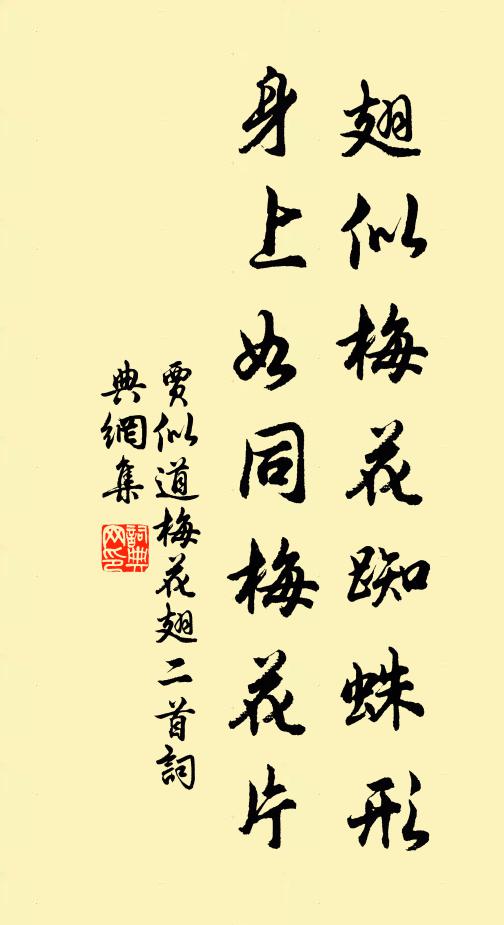 翅似梅花踟蛛形
身上如同梅花片
賈似道梅花翅二首詞
典網集
詞典网印